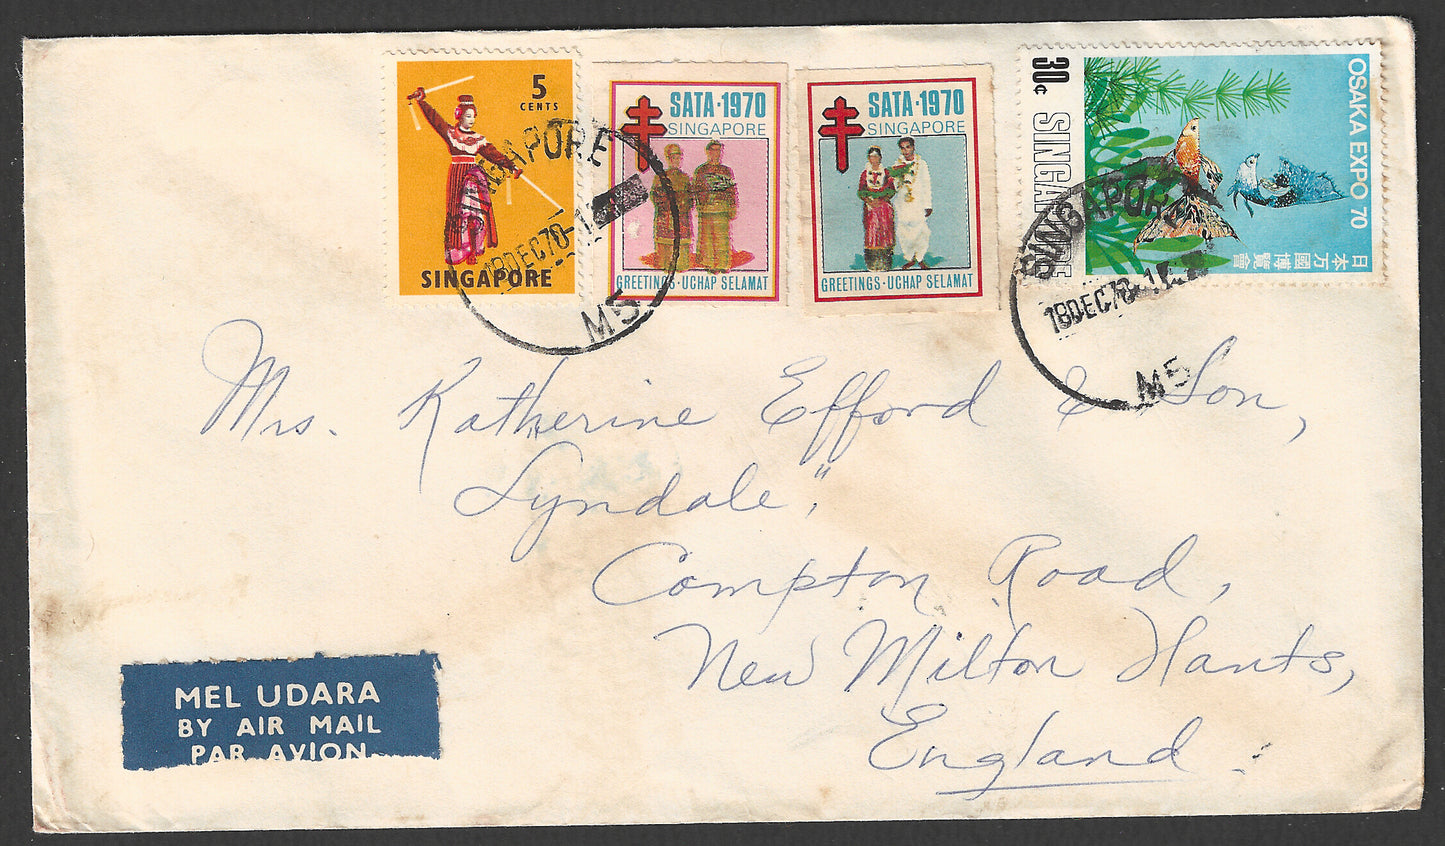 5
CENTS
SINGAPORE
SATA·1970
SINGAPORE
GREETINGS·UCHAP SELAMAT
SATA·1970
SINGAPORE
GREETINGS·UCHAP SELAMAT
30¢
SINGAPORE
OSAKA EXPO 70
日本万國博覽會
SINGAPORE
18DEC70
M5
SINGAPORE
18DEC70
M5
Mrs. Katherine Efford & Son,
"Lyndale",
Compton Road,
New Milton Hants,
England.
MEL UDARA
BY AIR MAIL
PAR AVION